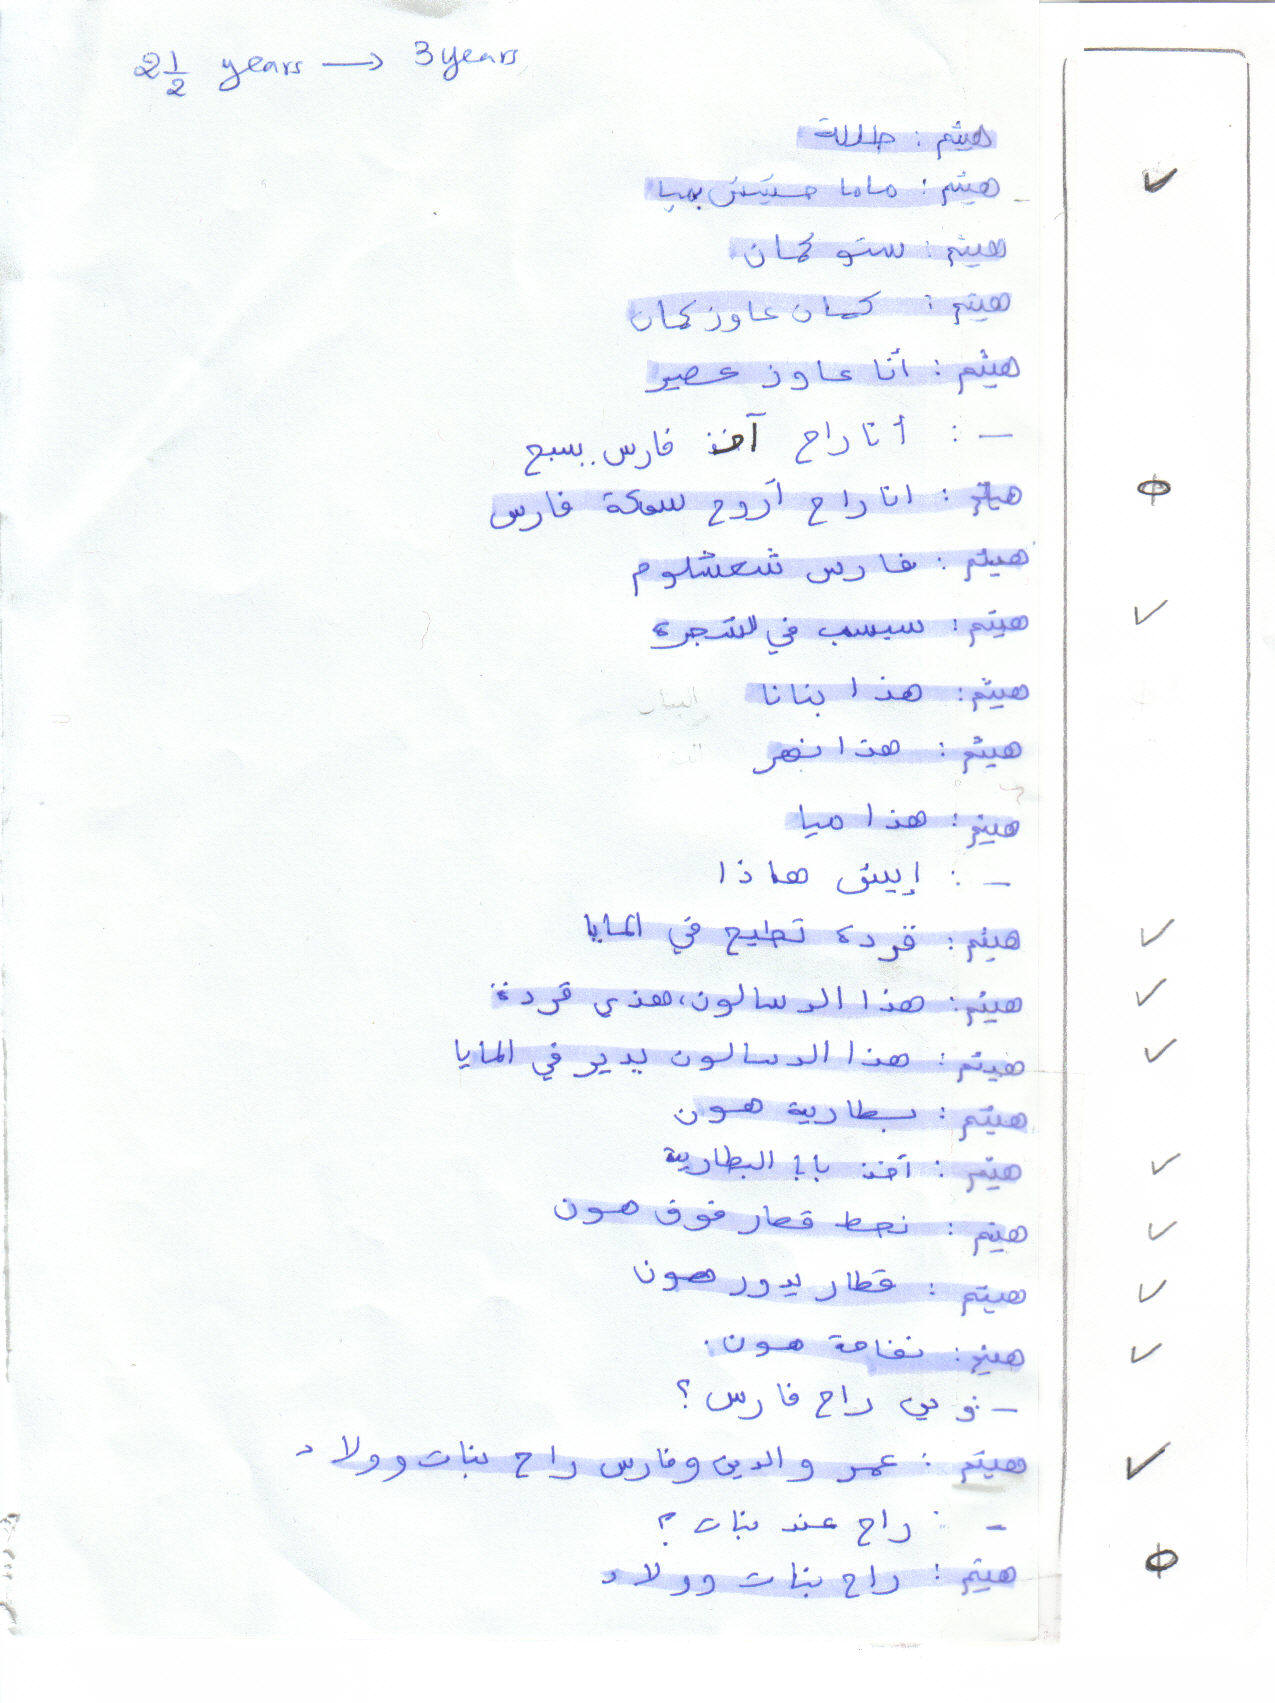 2½ years → 3 years
هيثم : طللة
هيثم : ماما حستنش بهيا
هيثم : ستو كمان
هيثم : كمان عاوز كمان
هيثم : أنا عاوز عصير
- : أنا راح آخذ فارس يسبح
هيثم : انا راح أروح سمكة فارس
هيثم : فارس شعشلوم
هيثم : سبسب في الشجرة
هيثم : هذا بنانا
هيثم : هذا نهر
هيثم : هذا ميا
- : إيش هاذا
هيثم : قردة تطيح في المايا
هيثم : هذا الدسالون، هذي قردة
هيثم : هذا الدسالون يدير في المايا
هيثم : بطارية هون
هيثم : آخذ بابا البطارية
هيثم : نحط قطار فوق هون
هيثم : قطار يدور هون
هيثم : تفاحة هون.
- : وين راح فارس؟
هيثم : عمر والدين وفارس راح بنات وولاد
- : راح عند بنات؟
هيثم : راح بنات وولاد